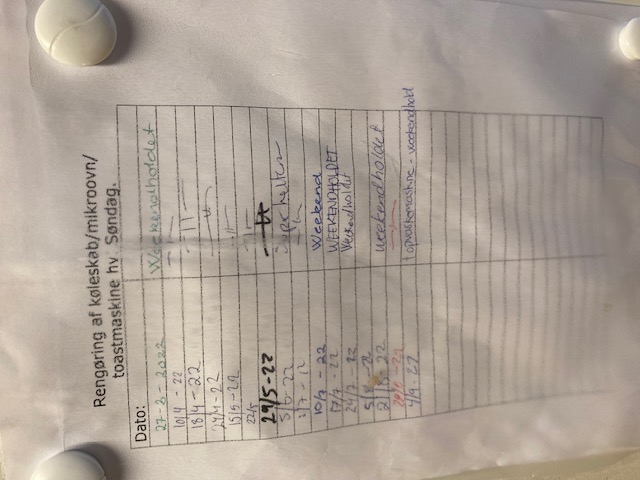 Rengøring af køleskab/mikroovn/
toastmaskine hv. Søndag.
Dato:
27-2-2022 Weekendholdet
10/4-22 -11-
18/4-22 -11-
24/4-22 -11-
15/5-22 -11-
22/5 -11-
29/5-22
5/6-22
3/7-22
10/7-22 Weekend
17/7-22 WEEKENDHOLDET
24/7-22 Weekendholdet
22 weekendholdet
4/9 22 opvaskemaskine - weekendhold